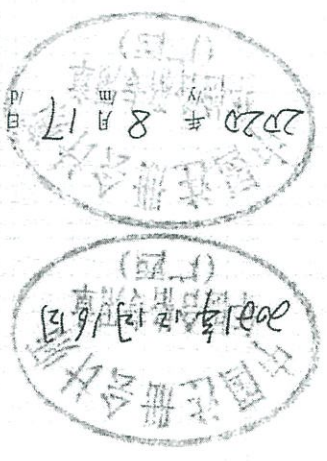 中国注册会计师
2021年12月16日
(广西)
中国注册会计师
2020 年 8 月 17 日
/y /m /d
(广西)